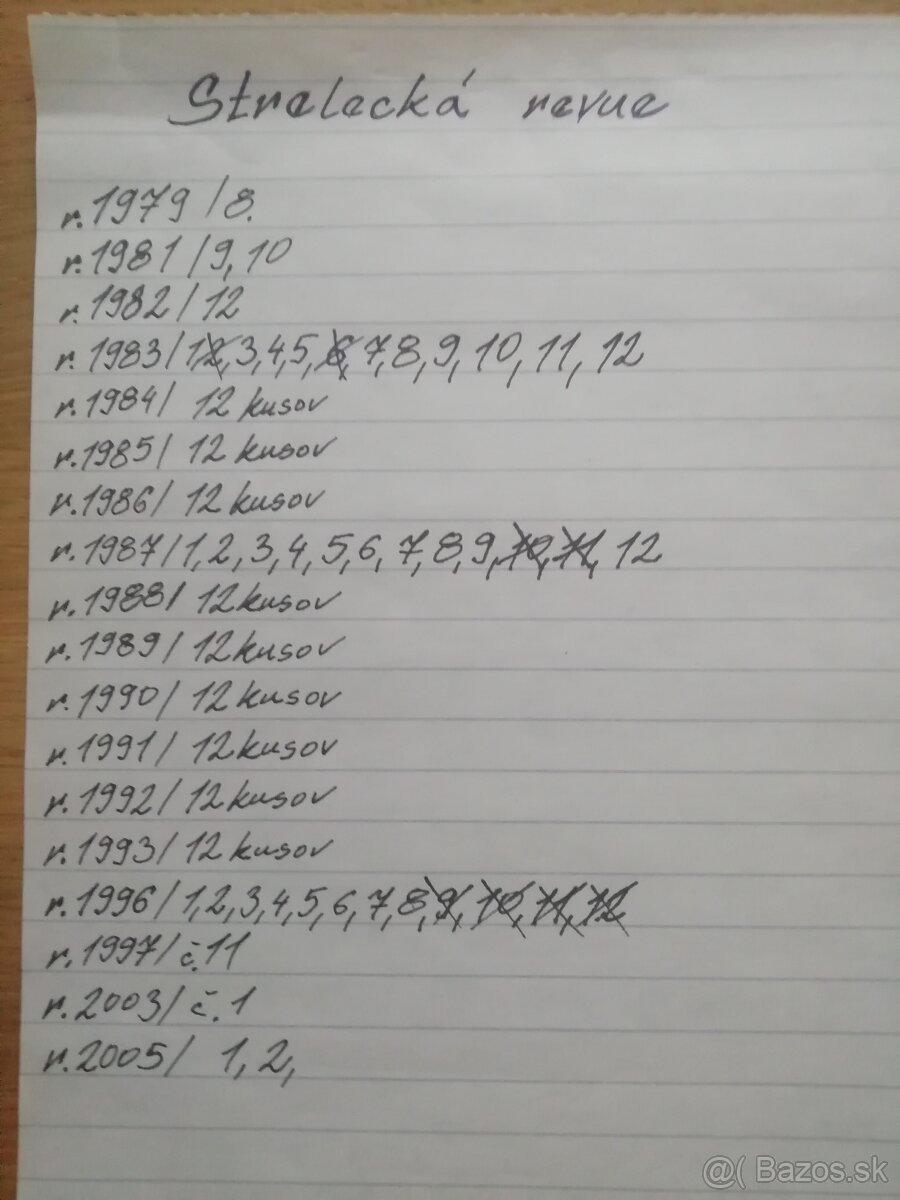 Strelecká revue
r.1979/8.
r.1981/9,10
r.1982/12
r.1983/12,3,4,5,6,7,8,9,10,11,12
r.1984/ 12 kusov
r.1985/ 12 kusov
r.1986/ 12 kusov
r.1987/1,2,3,4,5,6,7,8,9,10,11,12
r.1988/ 12 kusov
r.1989/ 12 kusov
r.1990/ 12 kusov
r.1991/ 12 kusov
r.1992/ 12 kusov
r.1993/ 12 kusov
r.1996/1,2,3,4,5,6,7,8,9,10,11,12
r.1997/č.11
r.2003/č.1
r.2005/ 1,2,
@( Bazos.sk